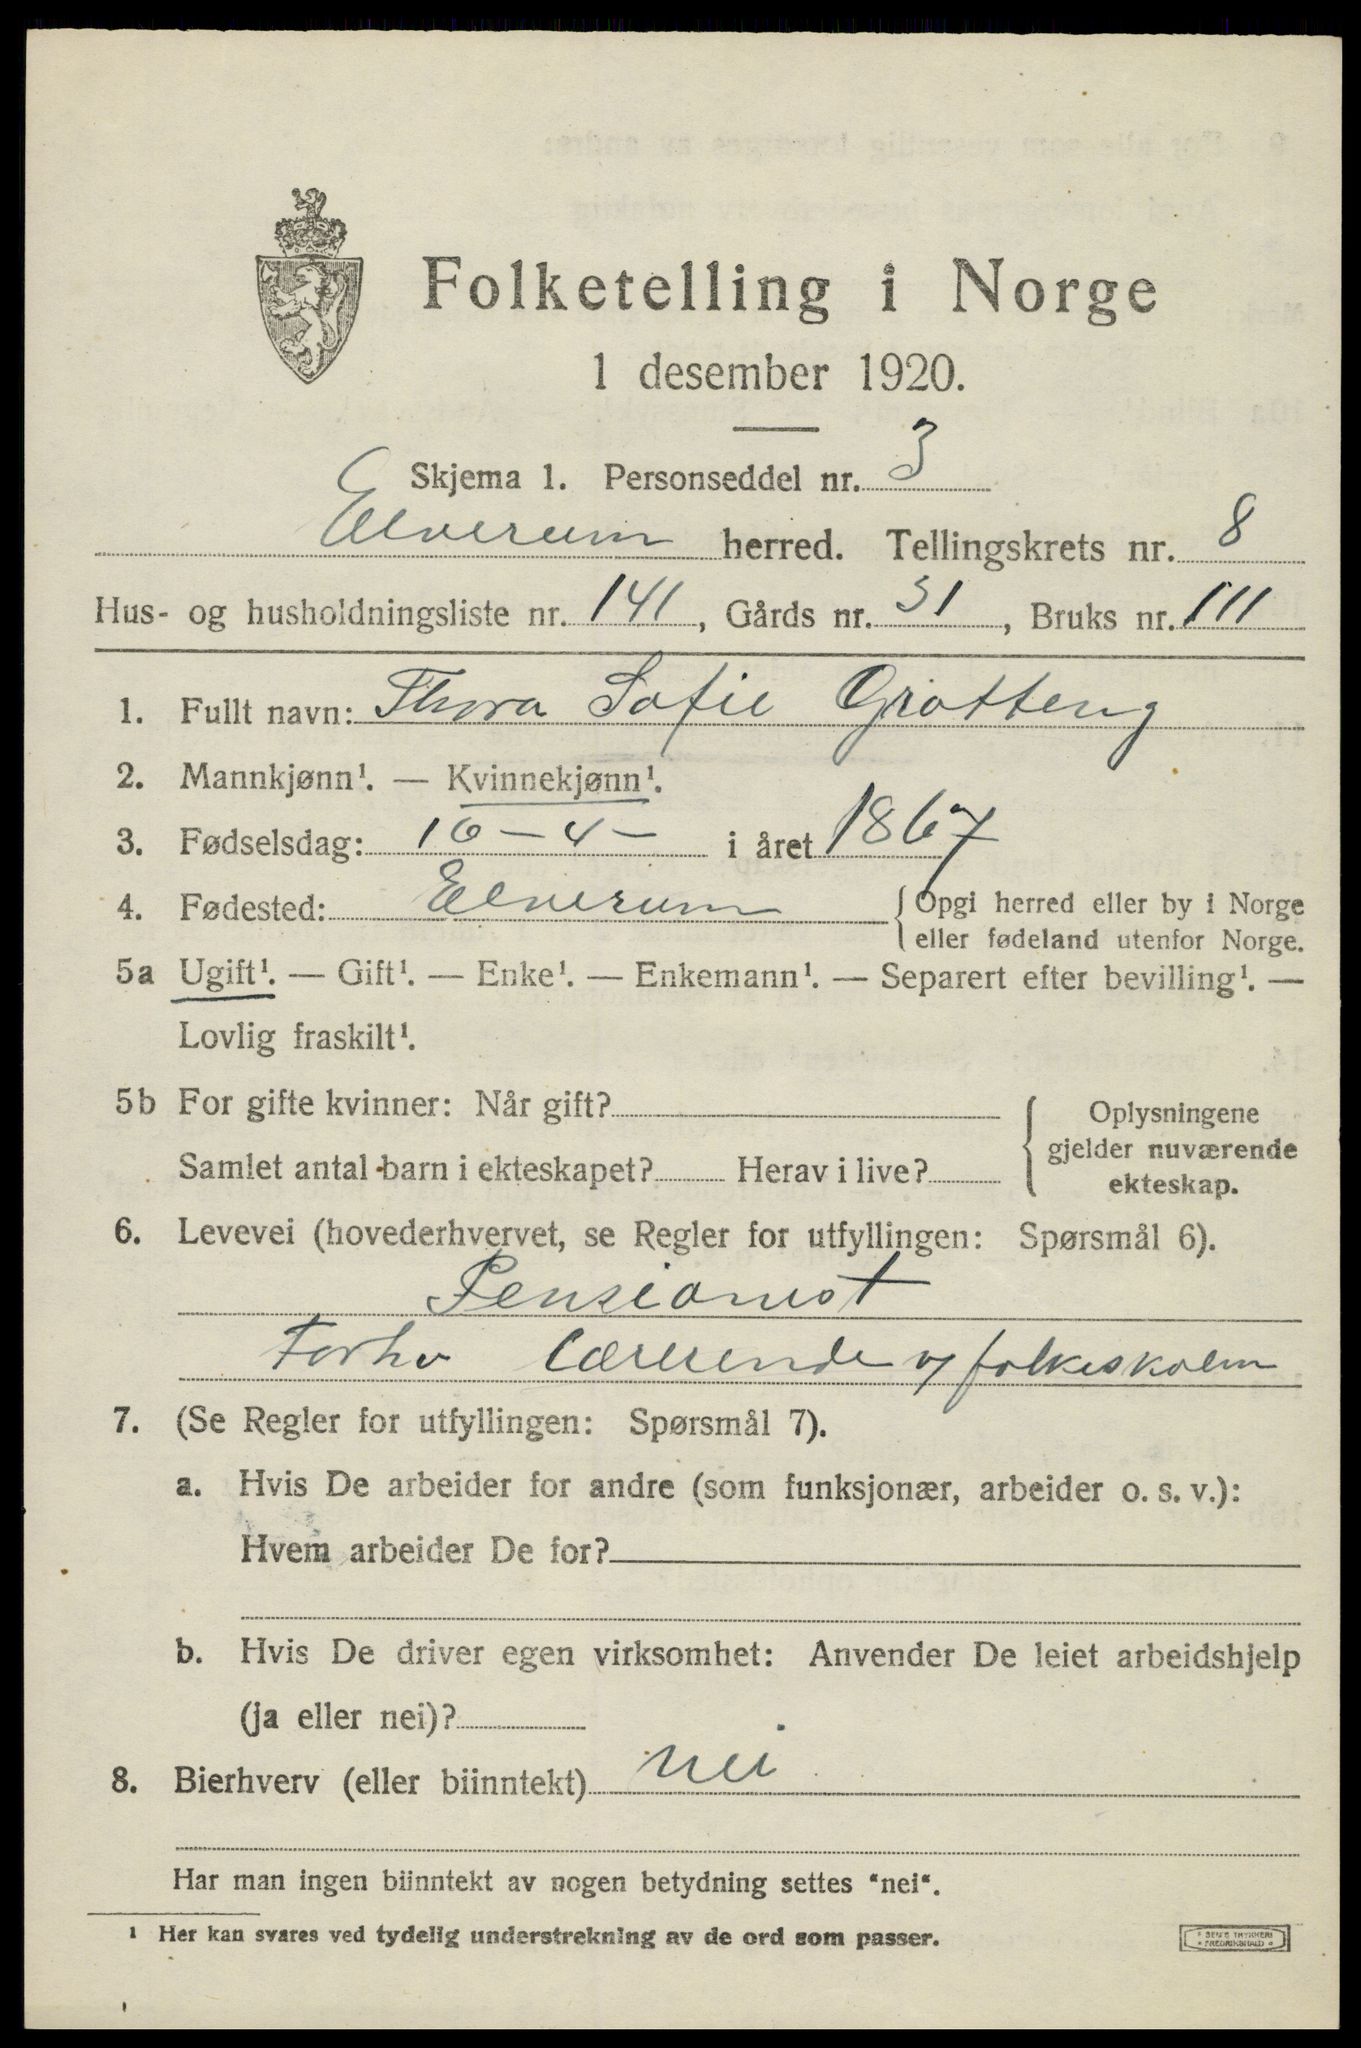 Folketelling i Norge
1 desember 1920.
Skjema 1. Personseddel nr. 3
Elverum herred. Tellingskrets nr. 8
Hus- og husholdningsliste nr. 141, Gårds nr. 31, Bruks nr. 111
1. Fullt navn: Thora Sofie Grotteng
2. Mannkjønn¹. — Kvinnekjønn¹.
3. Fødselsdag: 16-4- i året 1867
4. Fødested: Elverum { Opgi herred eller by i Norge
eller fødeland utenfor Norge.
5a Ugift¹. — Gift¹. — Enke¹. — Enkemann¹. — Separert efter bevilling¹. —
Lovlig fraskilt¹.
5b For gifte kvinner: Når gift?
Samlet antal barn i ekteskapet? Herav i live?
{ Oplysningene
gjelder nuværende
ekteskap.
6. Levevei (hovederhvervet, se Regler for utfyllingen: Spørsmål 6).
Pensionist
Forhv folkeskolen
7. (Se Regler for utfyllingen: Spørsmål 7).
a. Hvis De arbeider for andre (som funksjonær, arbeider o. s. v.):
Hvem arbeider De for?
b. Hvis De driver egen virksomhet: Anvender De leiet arbeidshjelp
(ja eller nei)?
8. Bierhverv (eller biinntekt) nei
Har man ingen biinntekt av nogen betydning settes "nei".
¹ Her kan svares ved tydelig understrekning av de ord som passer.